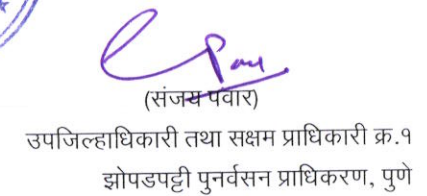 (संजय पवार)
उपजिल्हाधिकारी तथा सक्षम प्राधिकारी क्र.१
झोपडपट्टी पुनर्वसन प्राधिकरण, पुणे